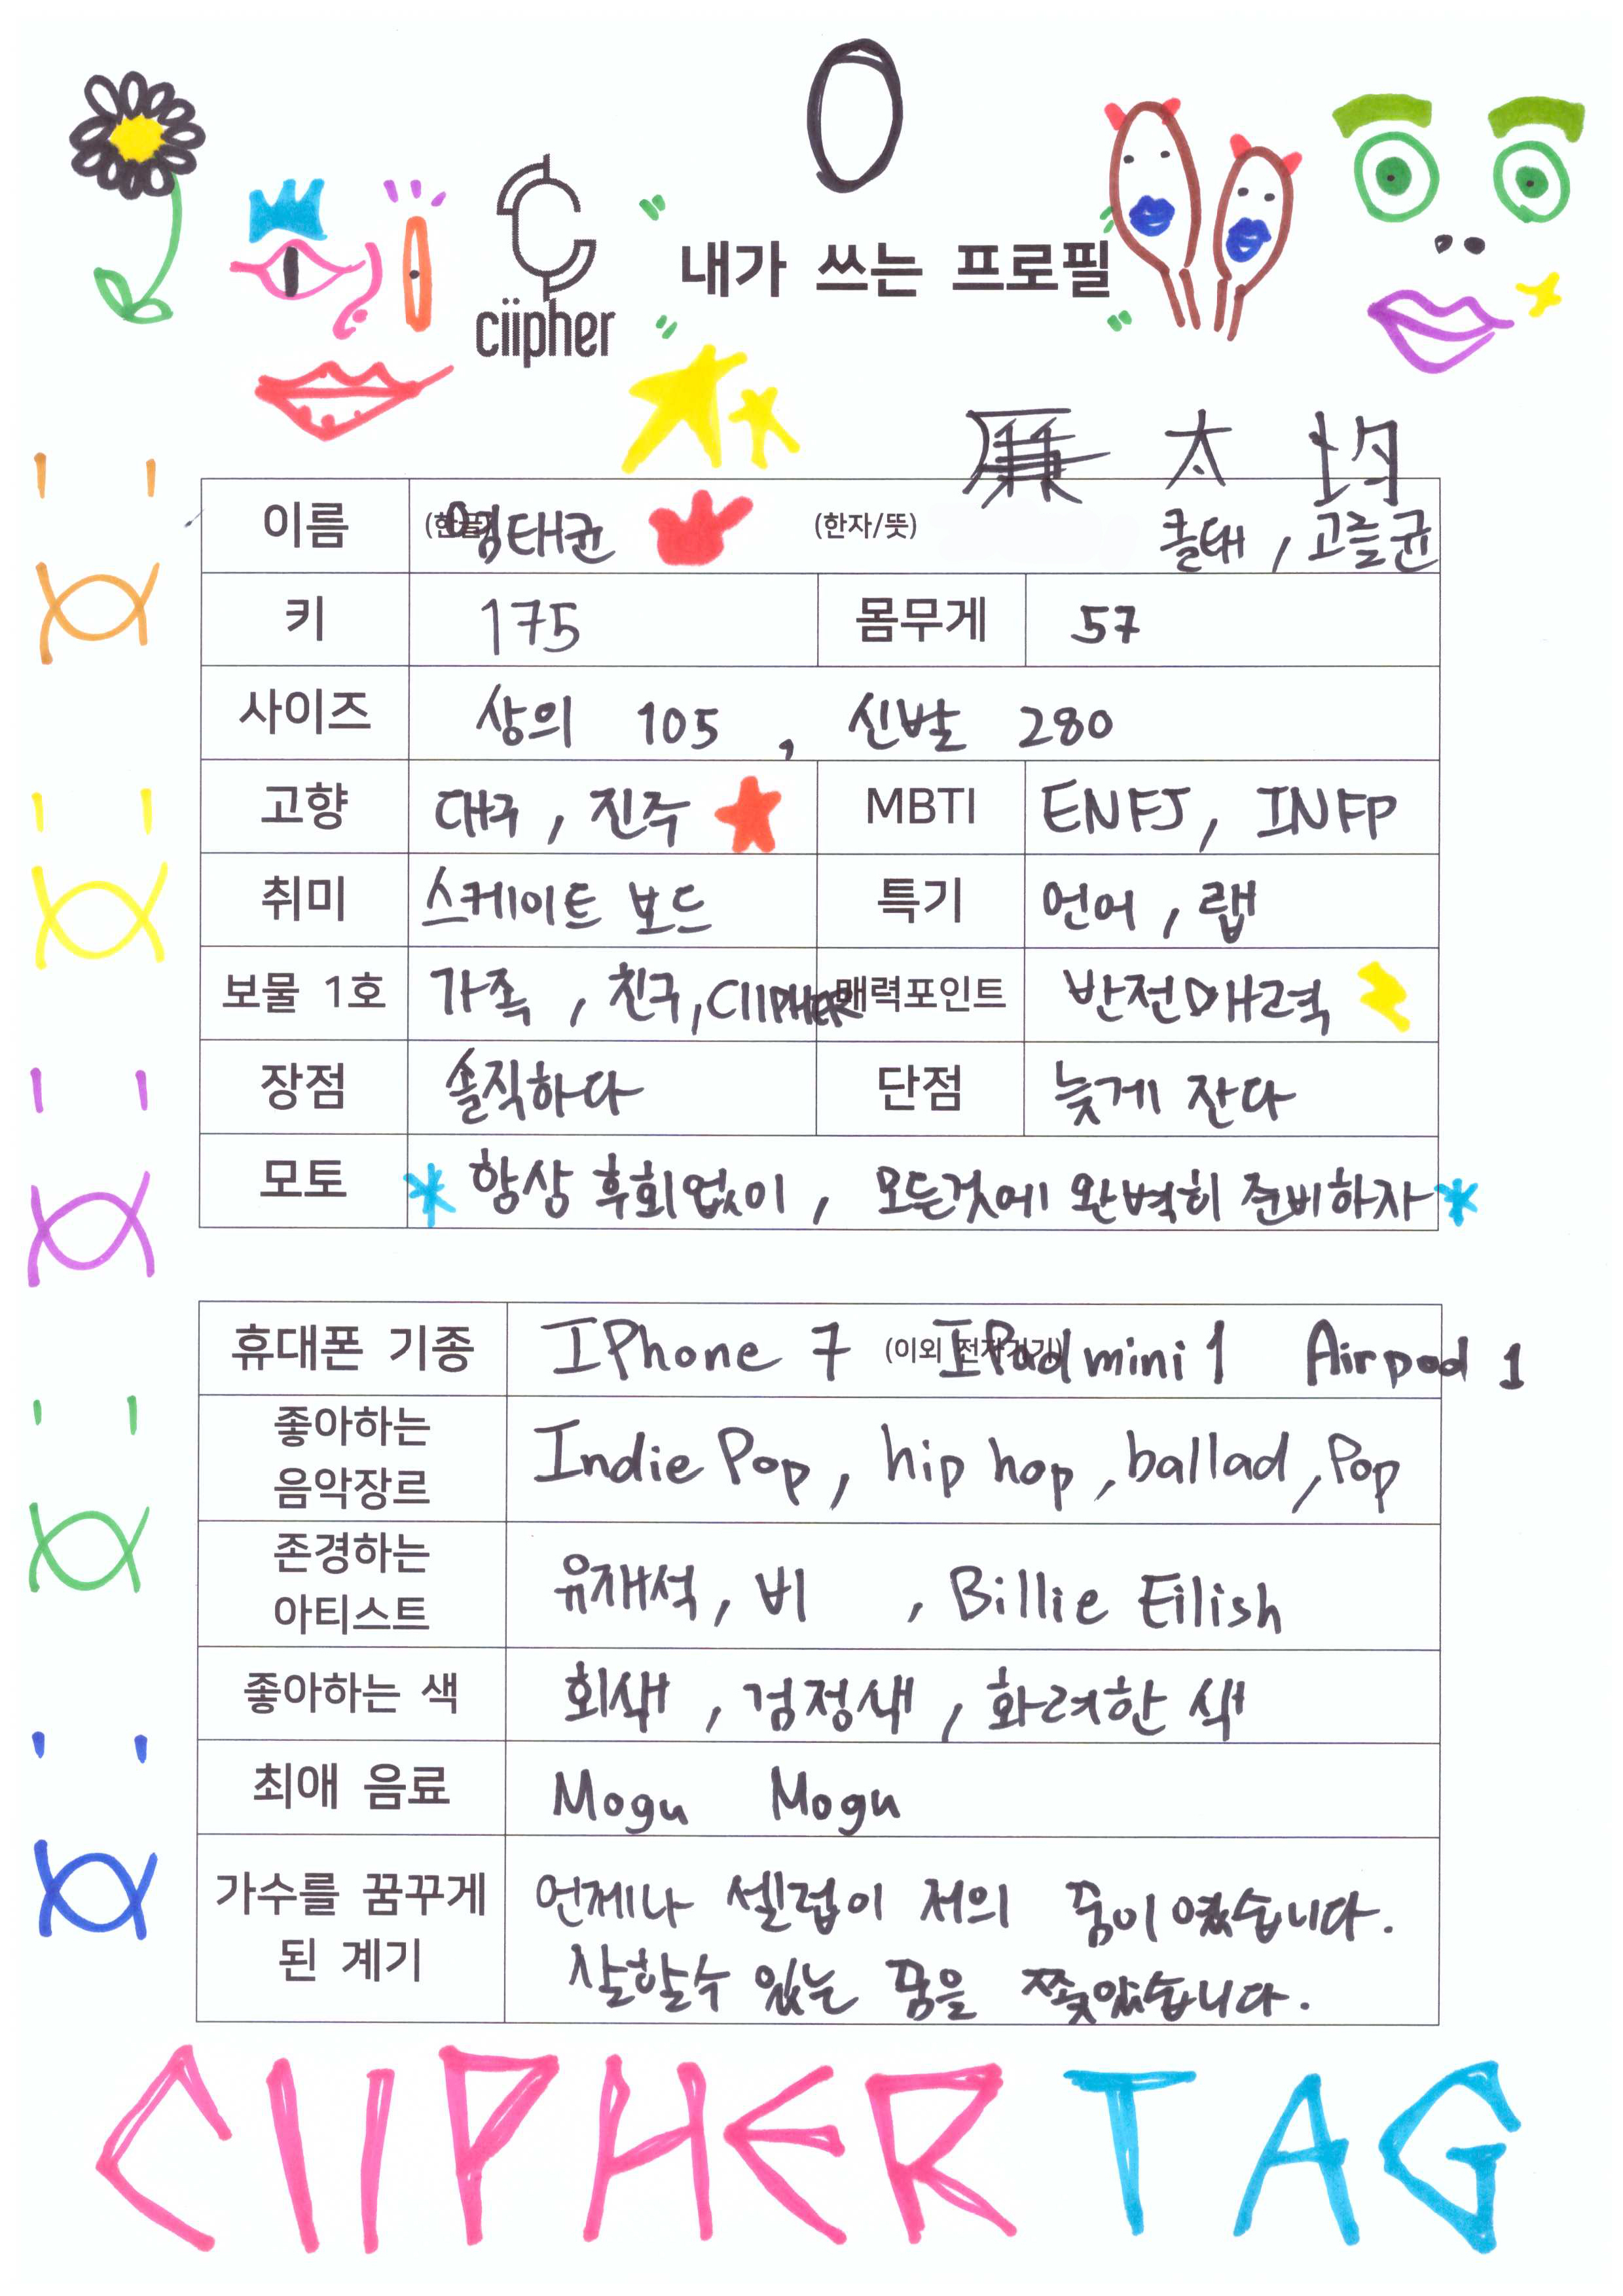 ciipher
" 내가 쓰는 프로필 "
廉 太 均
이름 (한글) 염태균 (한자/뜻) 클태 , 고를균
키 175 몸무게 57
사이즈 상의 105 , 신발 280
고향 대구 , 진주 MBTI ENFJ, INFP
취미 스케이트 보드 특기 언어 , 랩
보물 1호 가족 , 친구, CIIPHER 매력포인트 반전매력
장점 솔직하다 단점 늦게 잔다
모토 * 항상 후회없이 , 모든것에 완벽히 준비하자 *
휴대폰 기종 IPhone 7 (이외 전자기기) IPad mini 1 Airpod 1
좋아하는
음악장르 Indie Pop, hip hop, ballad, Pop
존경하는
아티스트 유재석, 비 , Billie Eilish
좋아하는 색 회색 , 검정색 , 화려한 색
최애 음료 Mogu Mogu
가수를 꿈꾸게
된 계기
언제나 셀럽이 저의 꿈이였습니다.
잘할수 있는 꿈을 쫒았습니다.
CIIPHER TAG